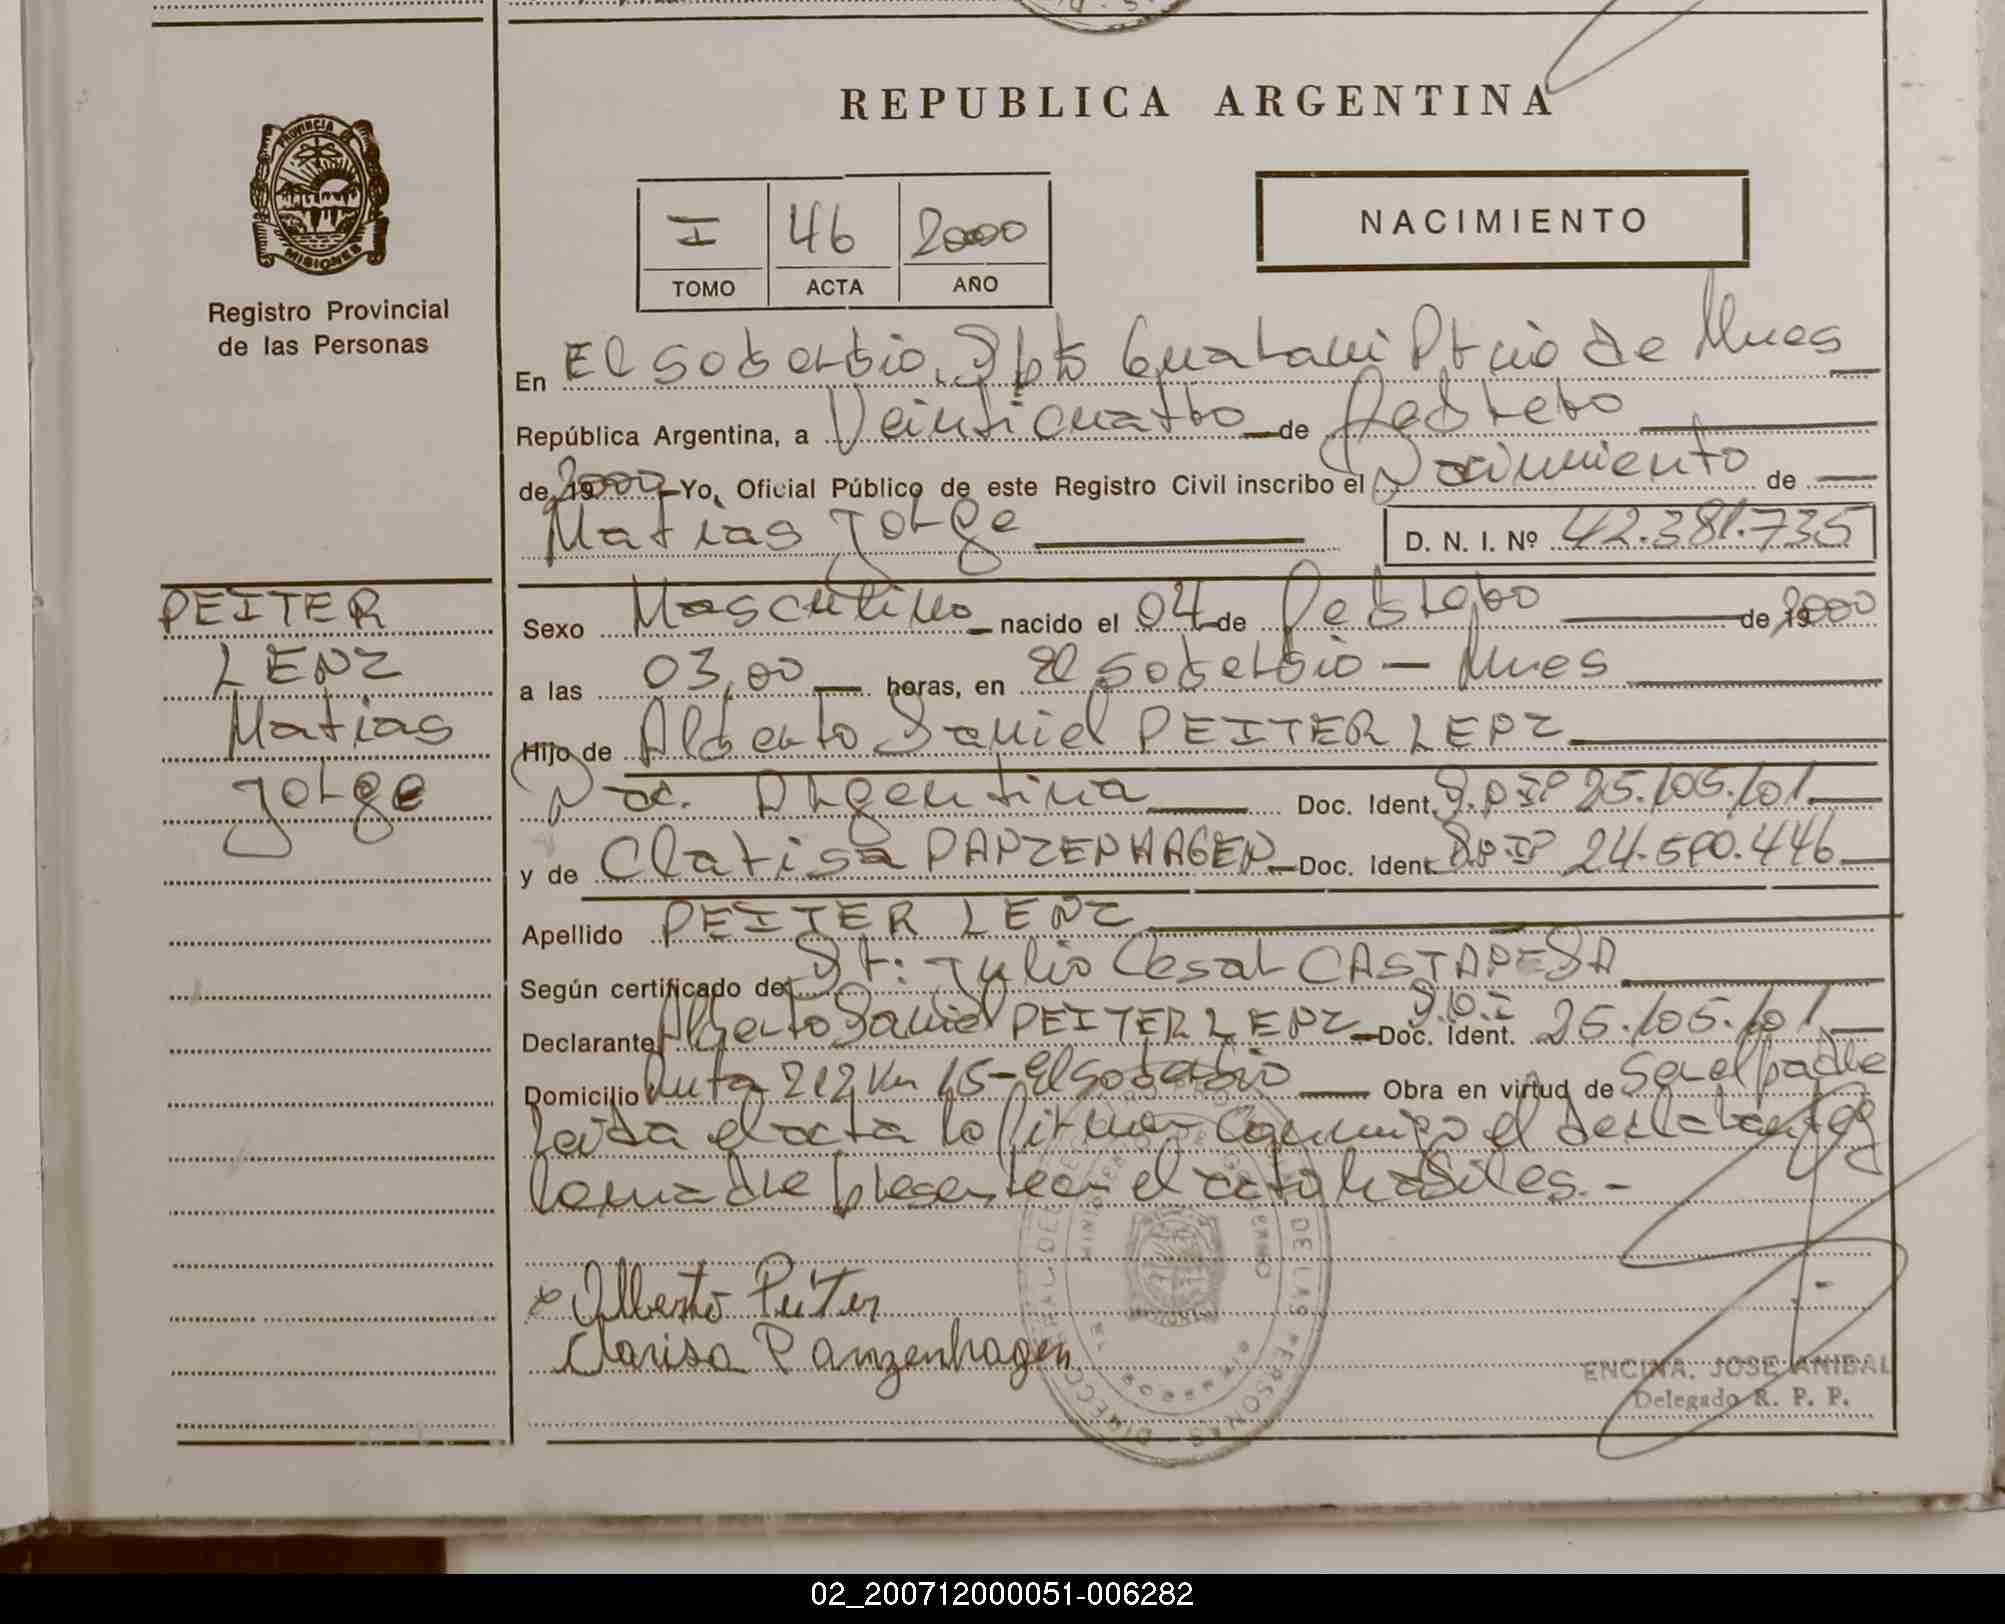 REPUBLICA ARGENTINA
PROVINCIA
MISIONES
Registro Provincial
de las Personas
I 46 2000
TOMO ACTA AÑO
NACIMIENTO
En El Soberbio, Dpto Guarani Pcia de Mnes
República Argentina, a Veinticuatro de Febrero
de 19 2000 Yo, Oficial Público de este Registro Civil inscribo el Nacimiento de
Matias Jorge D. N. I. Nº 42.381.735
PEITER
LENZ
Matias
Jorge
Sexo Masculino nacido el 04 de Febrero de 19 2000
a las 03,00 horas, en El Soberbio - Mnes
Hijo de Alberto Daniel PEITER LENZ
Nac. Argentina Doc. Ident. D.N.I Nº 25.105.101
y de Clarisa PANZENHAGEN Doc. Ident. D.N.I Nº 24.590.446
Apellido PEITER LENZ
Según certificado de Dr: Julio Cesar CASTAÑEDA
Declarante Alberto Daniel PEITER LENZ Doc. Ident. D.N.I 25.105.101
Domicilio Ruta 212 Km 15 - El Soberbio Obra en virtud de Ser el padre
Leida el acta la firman conmigo el declarante y
la madre presente en el acto
Alberto Peiter
Clarisa Panzenhagen
ENCINA. JOSE ANIBAL
Delegado R. P. P.
02_200712000051-006282